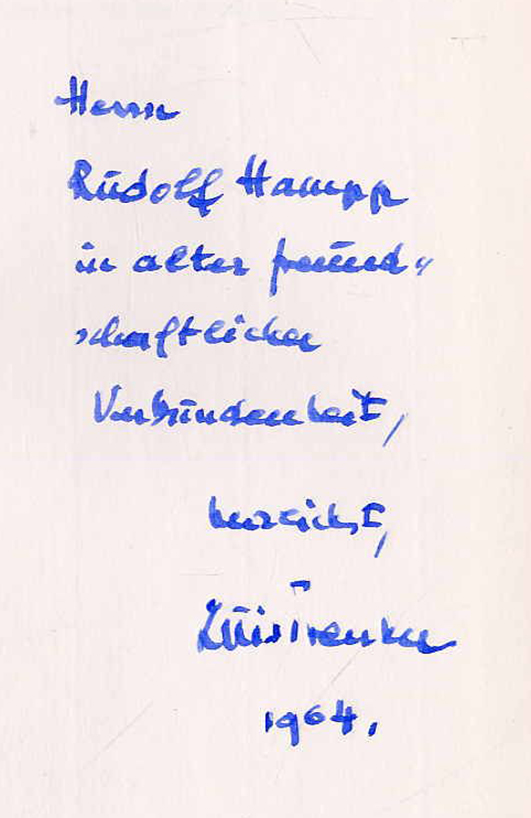 Herrn
Rudolf Hampp
in alter freund„
schaftlicher
Verbundenheit,
herzlichst,
Luis Trenker
1964.